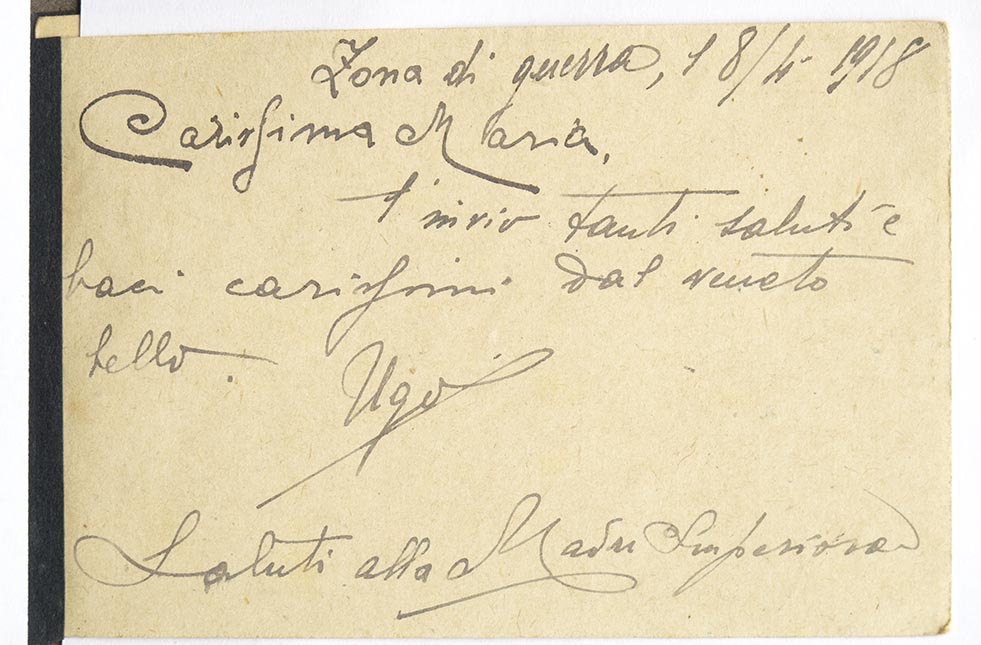 Zona di guerra, 18/4 1918
Carissima Maria,
T'invio tanti saluti e
baci carissimi dal veneto
bello.
Ugo
Saluti alla Madre Superiora